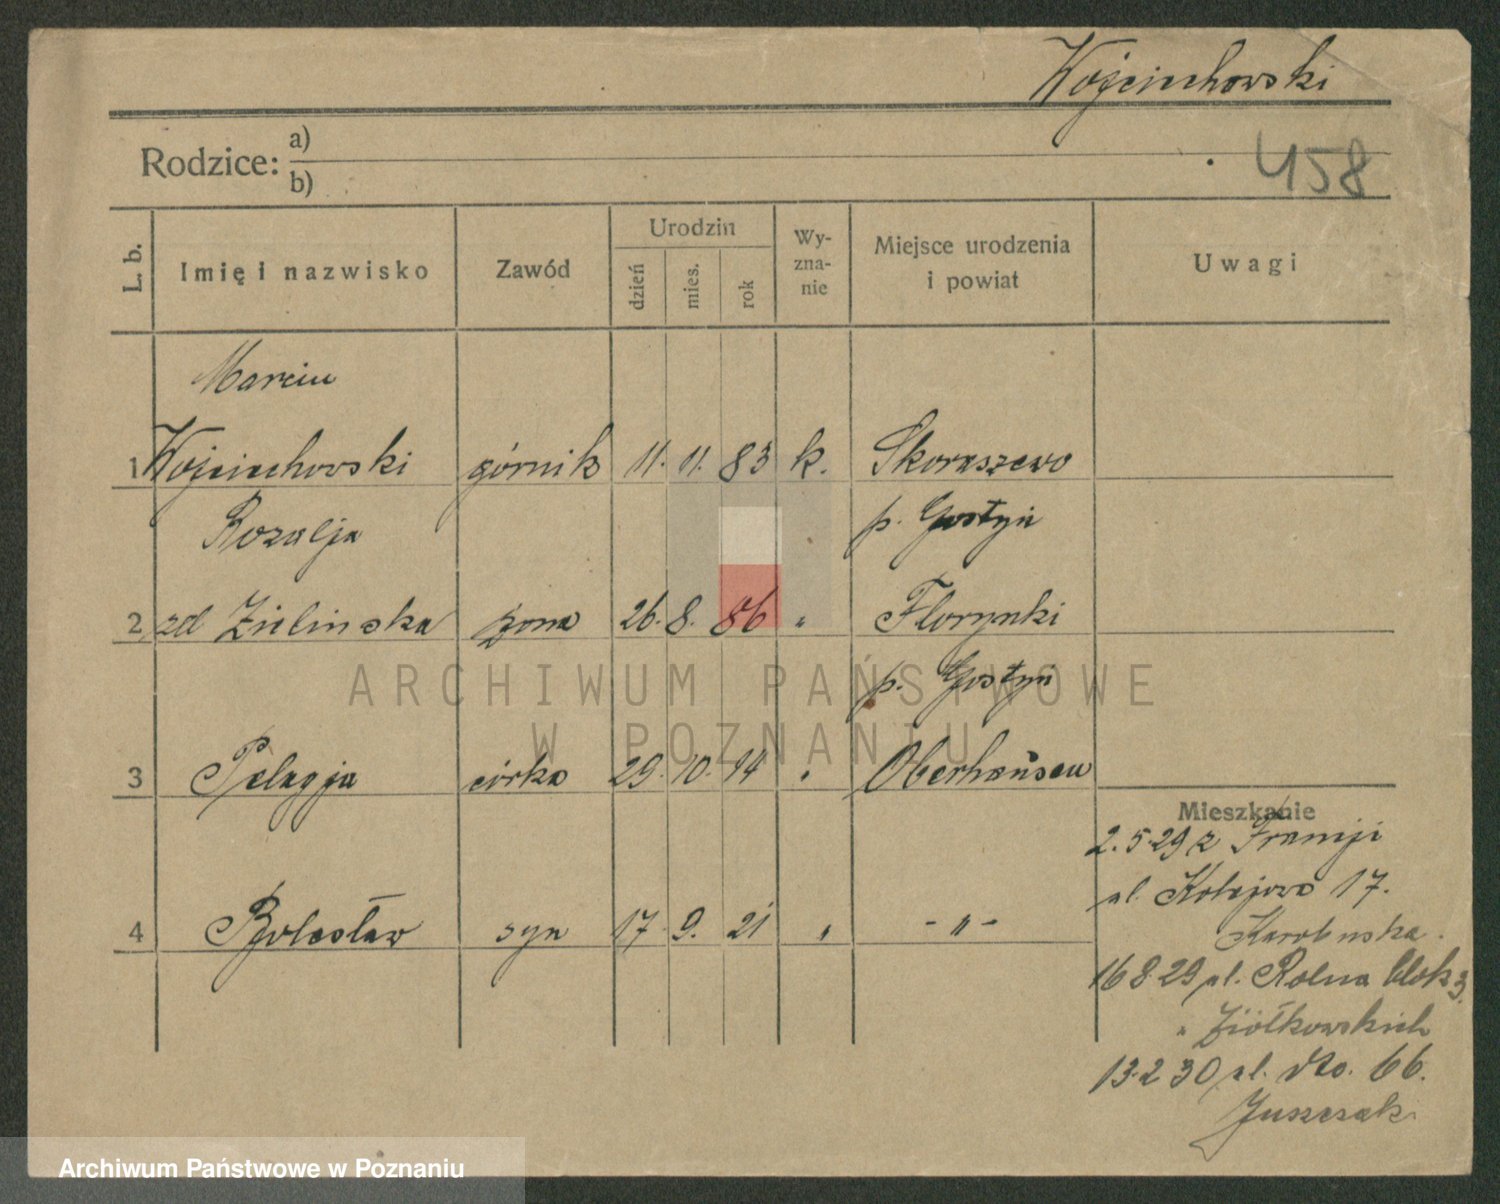 Wojciechowski
Rodzice: a)
b)
458
L. b.
Imię i nazwisko
Zawód
Urodzin
dzień
mies.
rok
Wy-
zna-
nie
Miejsce urodzenia
i powiat
Uwagi
Marcin
1 Wojciechowski górnik 11. 11. 83 k. Skoraszewo
Rozalja p. Gostyń
2 zd Zielinska żona 26. 8. 86 " Florynki
p. Gostyń
3 Pelagja córka 29. 10. 14 " Oberhausen
Mieszkanie
2.5.29 z Francji
ul. Kolejowa 17.
4 Bolesław syn 17. 9. 21 " - " -
16 8.29 ul. Rolna blok 3.
" Ziółkowskich
13.2 30 ul. dto. 66.
Juszczak
ARCHIWUM PAŃSTWOWE
W POZNANIU
Archiwum Państwowe w Poznaniu